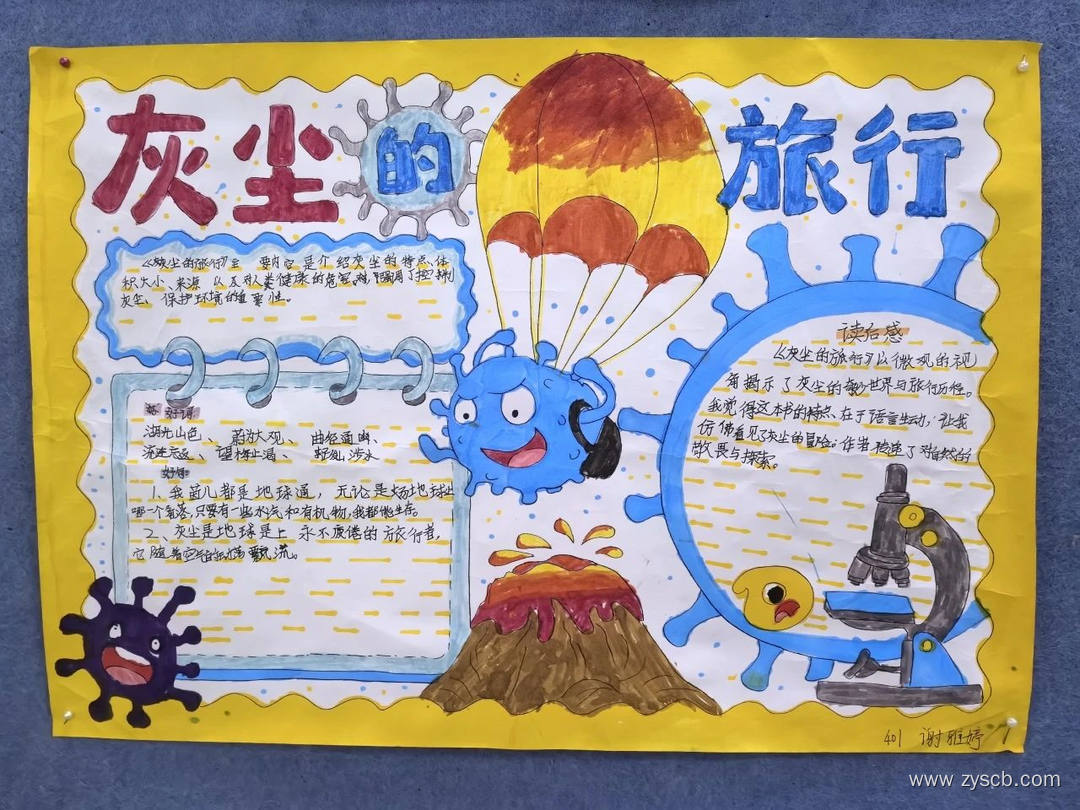 灰尘的旅行
《灰尘的旅行》主要内容是介绍灰尘的特点、体
积大小、来源以及对人类健康的危害。强调了控制
灰尘、保护环境的重要性。
好词
湖光山色、蔚为大观、曲径通幽、
流连忘返、望梅止渴、跋山涉水
好句
1、我们都是地球通,无论是地球上
哪一个角落,只要有一些水汽和有机物,我都能生存。
2、灰尘是地球上永不疲倦的旅行者,
它随着空气的飘流。
读后感
《灰尘的旅行》以微观的视
角揭示了灰尘的世界与旅行历程。
我觉得这本书的特点在于语言生动,让我
仿佛看见了灰尘的冒险。作者传递了对自然的
敬畏与探索。
401 谢雅婷
www.zyscb.com